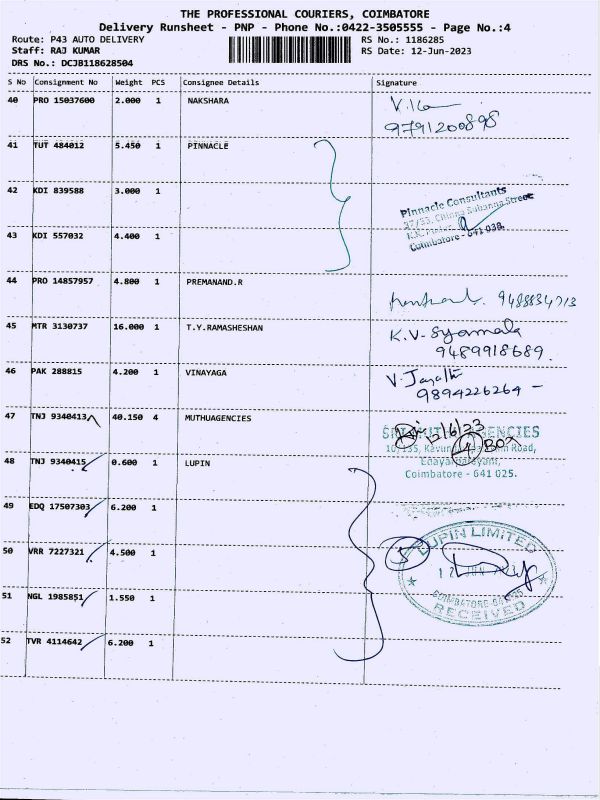 THE PROFESSIONAL COURIERS, COIMBATORE
Delivery Runsheet - PNP - Phone No.:0422-3505555 - Page No.:4
Route: P43 AUTO DELIVERY RS No.: 1186285
Staff: RAJ KUMAR RS Date: 12-Jun-2023
DRS No.: DCJB118628504
S No Consignment No Weight PCS Consignee Details Signature
40 PRO 15037600 2.000 1 NAKSHARA
9791200898
41 TUT 484012 5.450 1 PINNACLE
42 KDI 839588 3.000 1
Pinnacle Consultants
Chinna Subanna Street
43 KDI 557032 4.400 1
Coimbatore - 641 038.
44 PRO 14857957 4.800 1 PREMANAND.R
9488834713
45 MTR 3130737 16.000 1 T.Y.RAMASHESHAN K.V. Syamala
9489918689.
46 PAK 288815 4.200 1 VINAYAGA
9894226264 -
47 TNJ 9340413 40.150 4 MUTHUAGENCIES 12/6/23
AGENCIES
4 BOX
Road,
48 TNJ 9340415 0.600 1 LUPIN
Coimbatore - 641 025.
49 EDQ 17507303 6.200 1
LUPIN LIMITED
50 VRR 7227321 4.500 1 5
51 NGL 1985851 1.550 1
RECEIVED
52 TVR 4114642 6.200 1